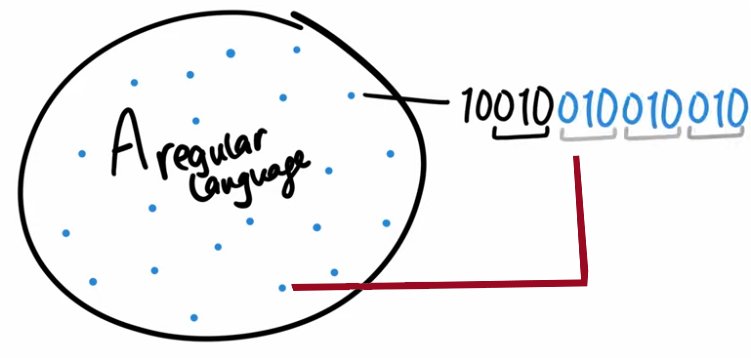 A regular
Language
10010010010010